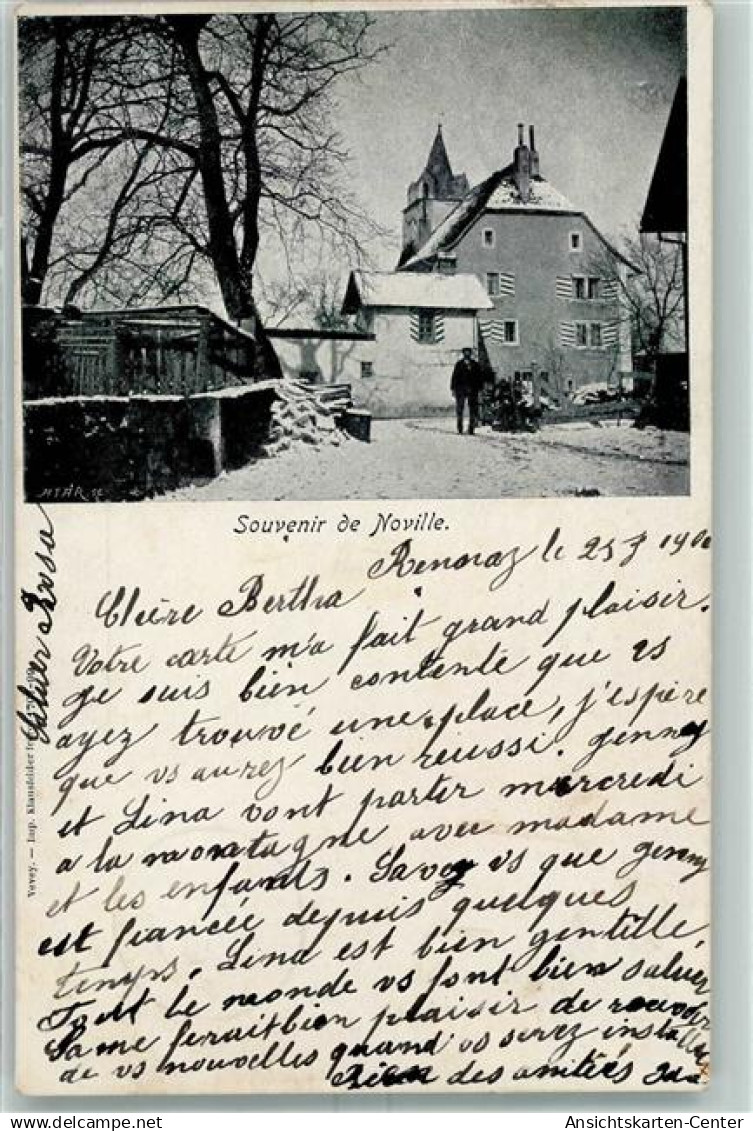 Souvenir de Noville.
Rennaz le 25 7 1900
Chère Bertha
Votre carte m'a fait grand plaisir.
je suis bien contente que vs
ayez trouvé une place, j'espère
que vs aurez bien reussi. Jenny
et Lina vont parter mercredi
a la montagne avec madame
et les enfants. Savez vs que Jenny
est fiancée depuis quelques
temps. Lina est bien gentille,
Tout le monde vs font bien saluer
Sa me ferait bien plaisir de
de vs nouvelles quand vs serez installée
Rien des amitiés Ida
Saluer Rosa
Vevey. — Imp. Klausfelder
Ansichtskarten-Center